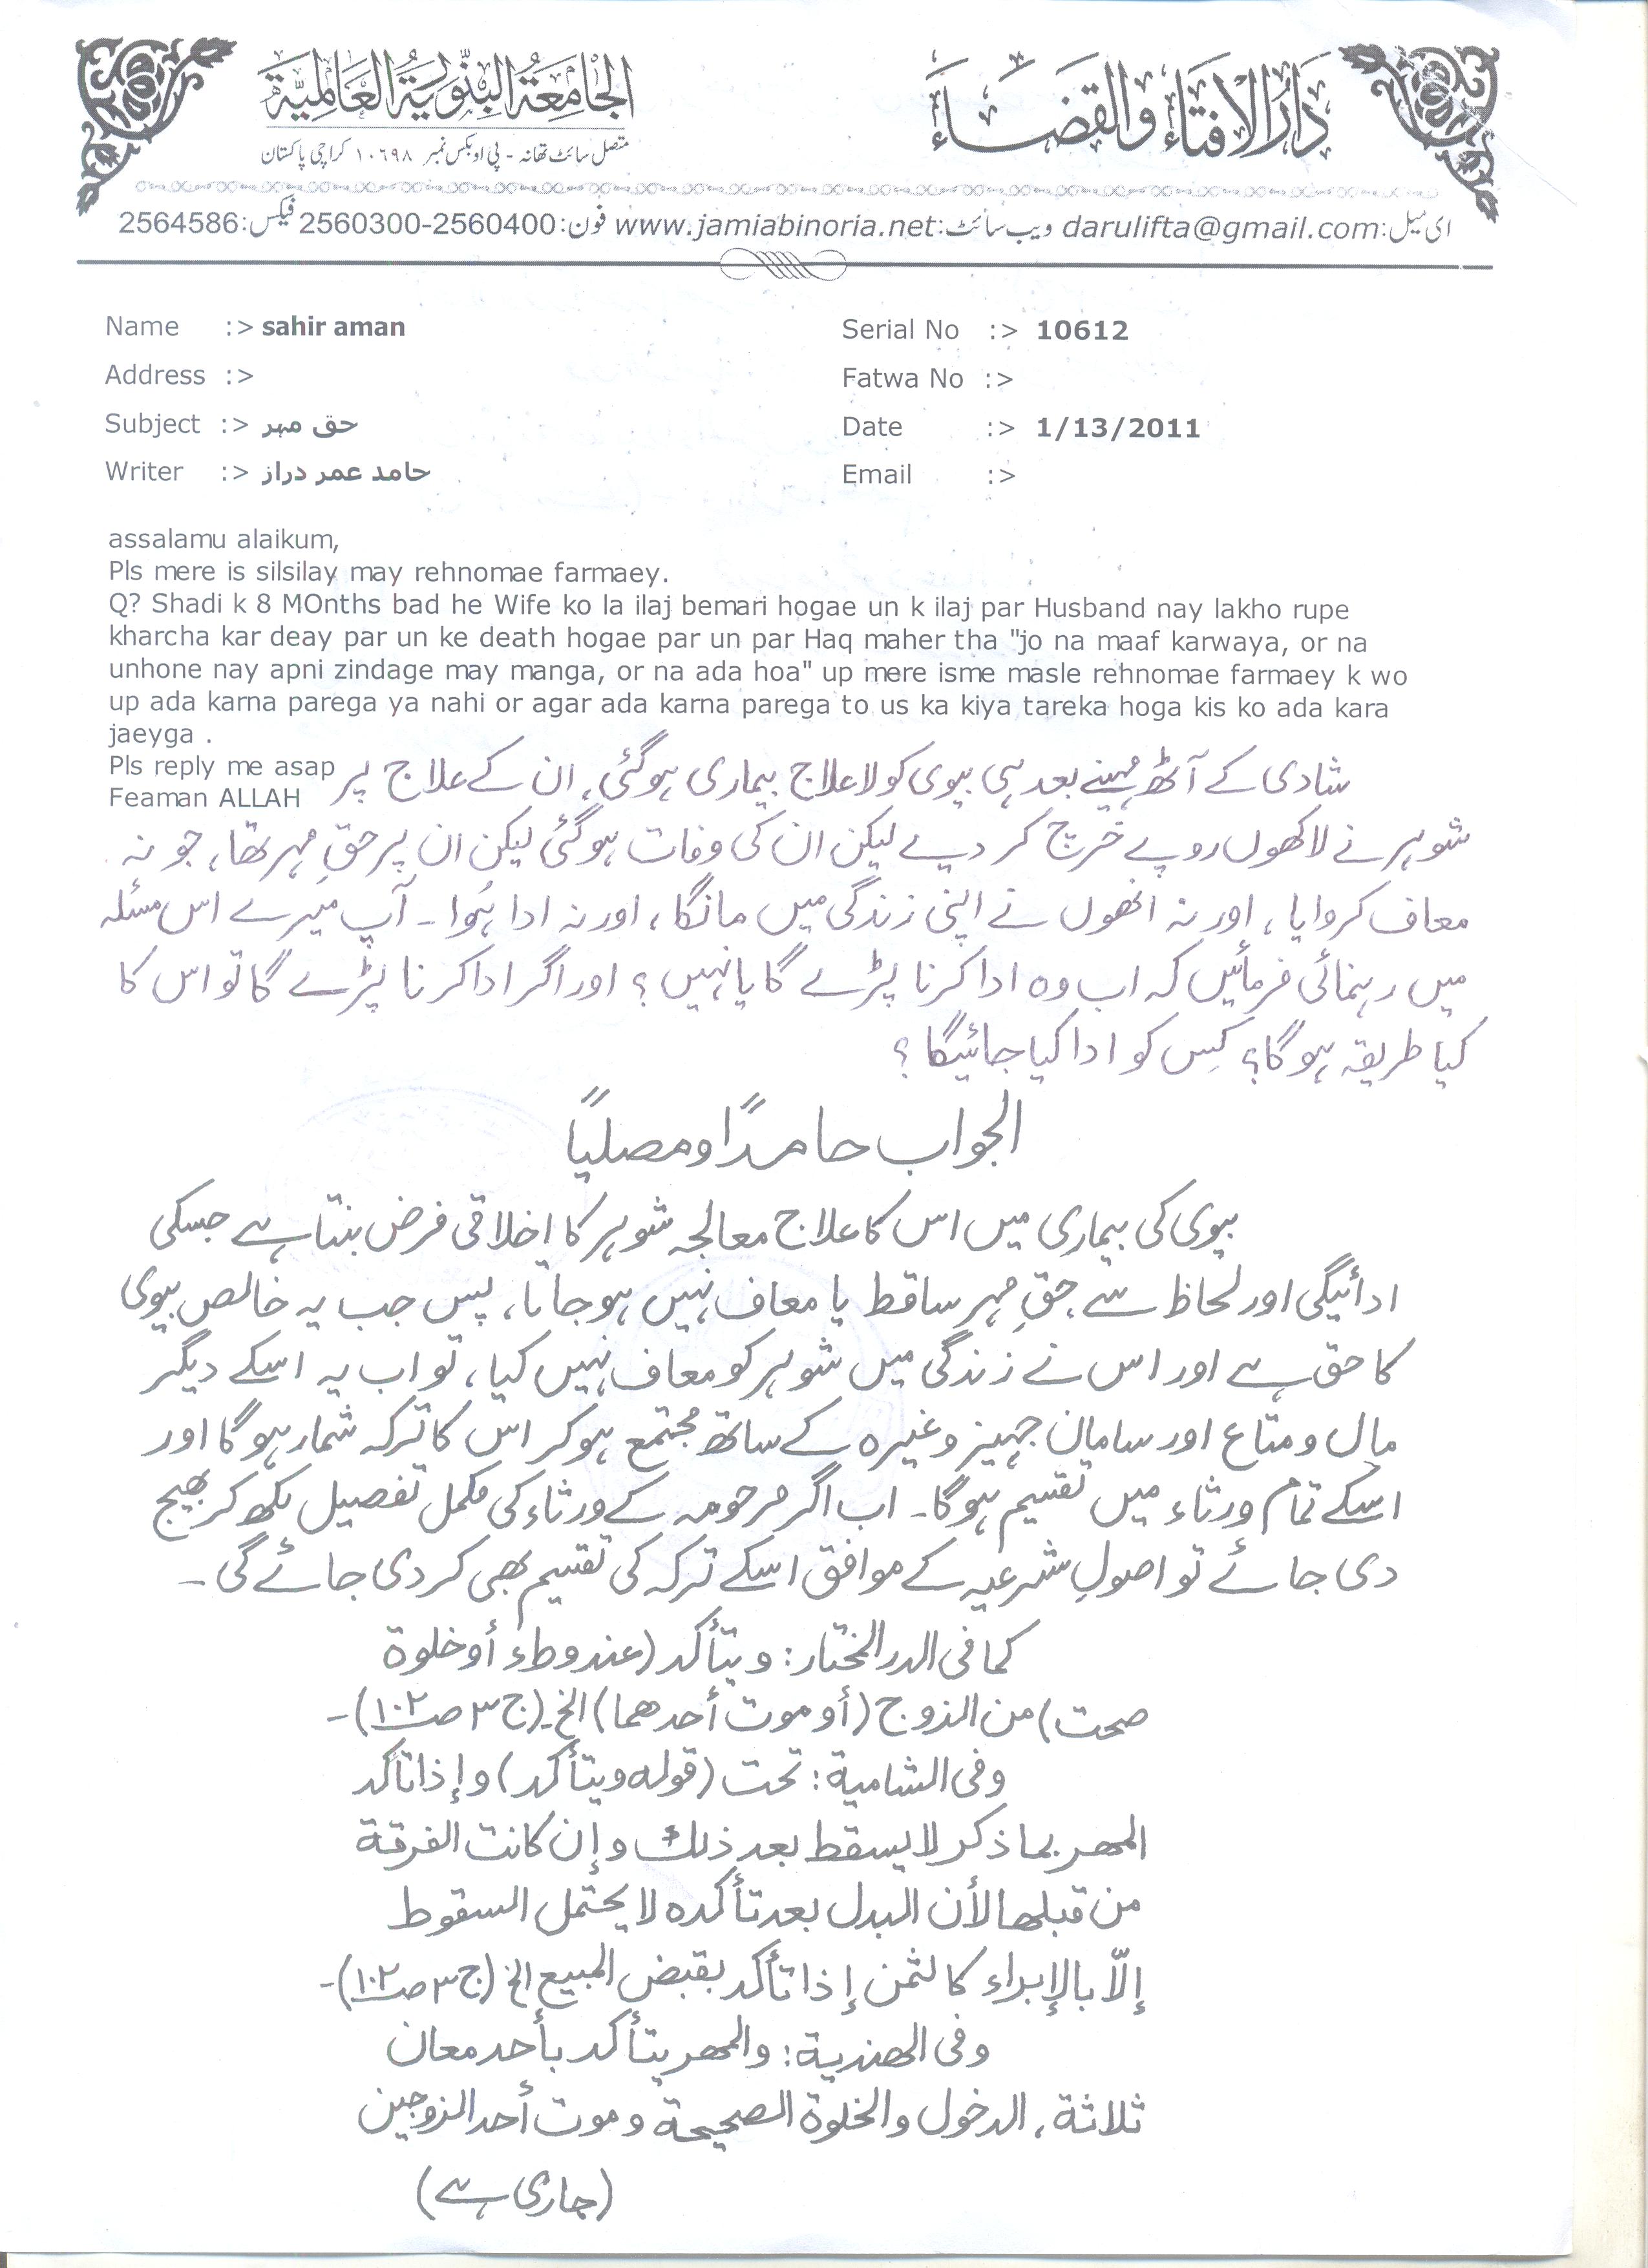 دَارُ الْاِفْتَاء وَالْقَضَاء
الجَامِعَةُ البِنُّورِيَّةُ العَالَمِيَّة
متصل سائٹ تھانہ - پی او بکس نمبر ۱۰۶۹۸ کراچی پاکستان
ای میل:darulifta@gmail.com ویب سائٹ:www.jamiabinoria.net فون:2560300-2560400 فیکس:2564586
Name :> sahir aman
Serial No :> 10612
Address :>
Fatwa No :>
Subject :> حق مہر
Date :> 1/13/2011
Writer :> حامد عمر دراز
Email :>
assalamu alaikum,
Pls mere is silsilay may rehnomae farmaey.
Q? Shadi k 8 MOnths bad he Wife ko la ilaj bemari hogae un k ilaj par Husband nay lakho rupe
kharcha kar deay par un ke death hogae par un par Haq maher tha "jo na maaf karwaya, or na
unhone nay apni zindage may manga, or na ada hoa" up mere isme masle rehnomae farmaey k wo
up ada karna parega ya nahi or agar ada karna parega to us ka kiya tareka hoga kis ko ada kara
jaeyga .
Pls reply me asap
Feaman ALLAH
شادی کے آٹھ مہینے بعد ہی بیوی کو لا علاج بیماری ہوگئی، ان کے علاج پر
شوہر نے لاکھوں روپے خرچ کر دیے لیکن ان کی وفات ہوگئی لیکن ان پر حقِ مہر تھا، جو نہ
معاف کروایا، اور نہ انھوں نے اپنی زندگی میں مانگا، اور نہ ادا ہُوا۔ آپ میرے اس مسئلہ
میں رہنمائی فرمائیں کہ اب وہ ادا کرنا پڑے گا یا نہیں؟ اور اگر ادا کرنا پڑے گا تو اس کا
کیا طریقہ ہوگا؟ کِس کو ادا کیا جائیگا؟
الجواب حامدًا ومصلیًا
بیوی کی بیماری میں اس کا علاج معالجہ شوہر کا اخلاقی فرض بنتا ہے جسکی
ادائیگی اور لحاظ سے حقِ مہر ساقط یا معاف نہیں ہوجاتا، پس جب یہ خالص بیوی
کا حق ہے اور اس نے زندگی میں شوہر کو معاف نہیں کیا، تو اب یہ اسکے دیگر
مال ومتاع اور سامانِ جہیز وغیرہ کے ساتھ مجتمع ہوکر اس کا ترکہ شمار ہوگا اور
اسکے تمام ورثاء میں تقسیم ہوگا۔ اب اگر مرحومہ کے ورثاء کی مکمل تفصیل لکھ کر بھیج
دی جائے تو اصولِ شرعیہ کے موافق اسکے ترکہ کی تقسیم بھی کردی جائے گی۔
کما فی الدر المختار: ویتأکد (عند وطء أو خلوة
صحت) من الزوج (أو موت أحدهما) الخ۔(ج ۳ صـ ۱۰۲)۔
وفی الشامیة: تحت (قوله ویتأکد) وإذا تأکد
المهر بما ذکر لا یسقط بعد ذلک وإن کانت الفرقة
من قبلها لأن البدل بعد تأکده لا یحتمل السقوط
إلّا بالإبراء کالثمن إذا تأکد بقبض المبیع الخ (ج ۳ صـ ۱۰۲)۔
وفی الهندیة: والمهر یتأکد بأحد معان
ثلاثة، الدخول والخلوة الصحیحة وموت أحد الزوجین
(جاری ہے)